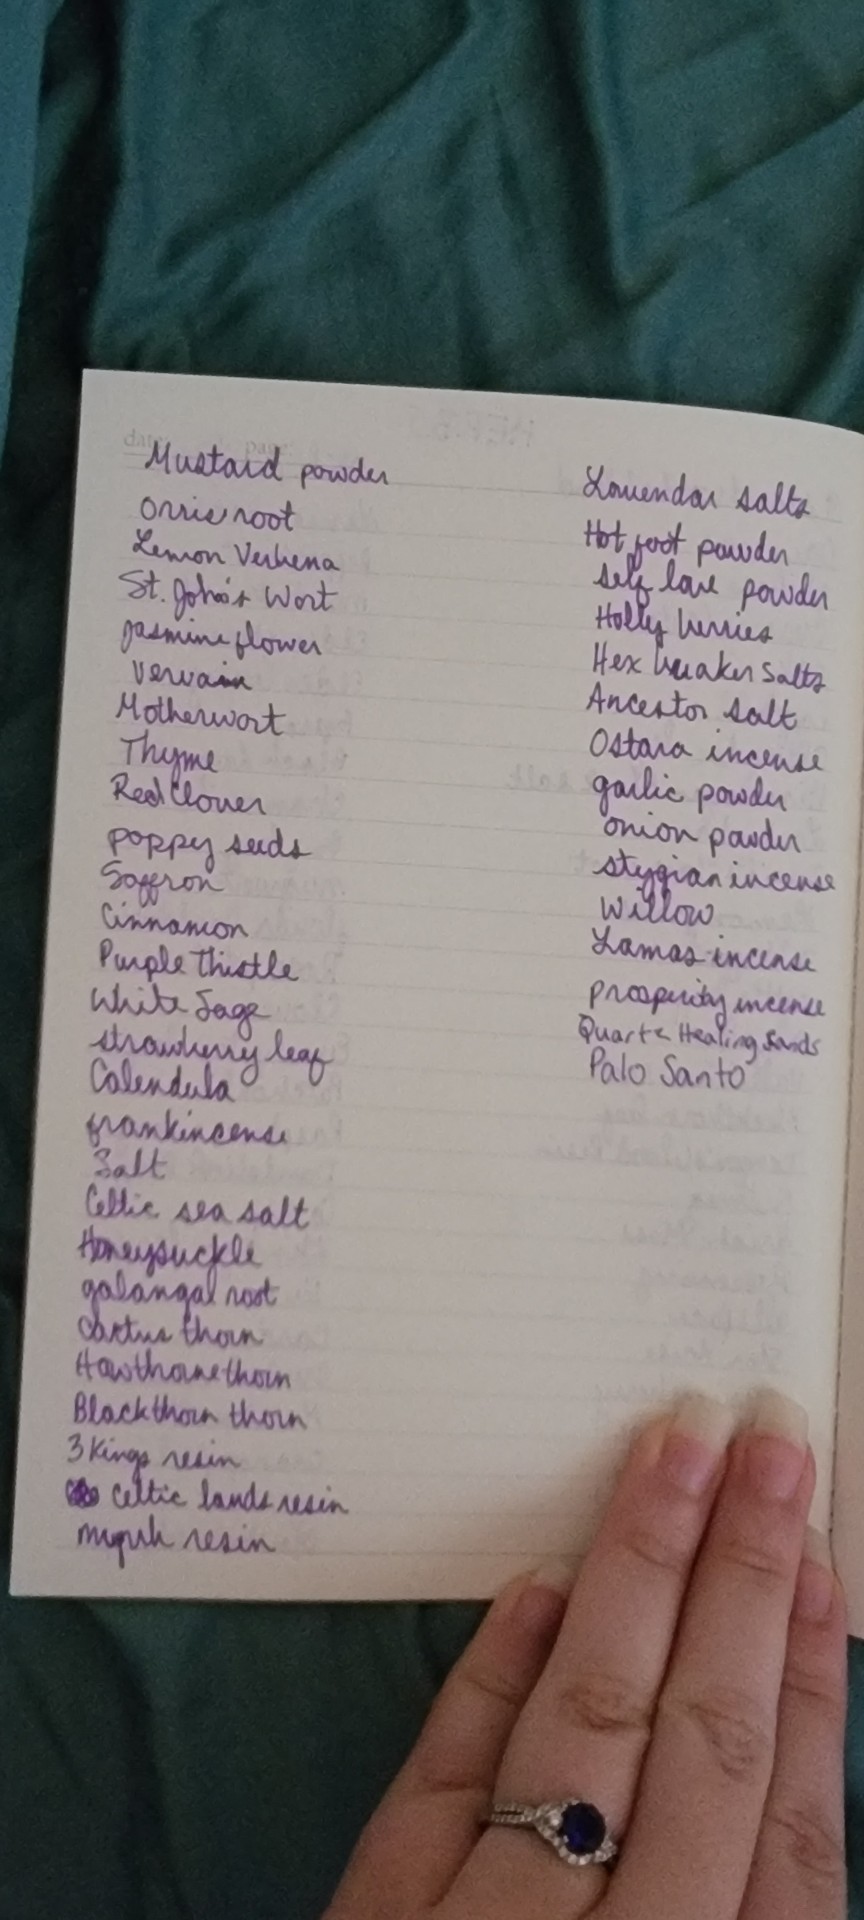 date: page:
Mustard powder
Orris root
Lemon Verbena
St. John's Wort
jasmine flower
Vervain
Motherwort
Thyme
Red Clover
poppy seeds
Saffron
Cinnamon
Purple Thistle
White Sage
strawberry leaf
Calendula
frankincense
Salt
Celtic sea salt
Honeysuckle
galangal root
Cactus thorn
Hawthorne thorn
Blackthorn thorn
3 Kings resin
Celtic lands resin
myrrh resin
Lavendar salts
Hot foot powder
self love powder
Holly berries
Hex breaker Salts
Ancestor salt
Ostara incense
garlic powder
onion powder
stygian incense
Willow
Lamas incense
prosperity incense
Quartz Healing Sands
Palo Santo